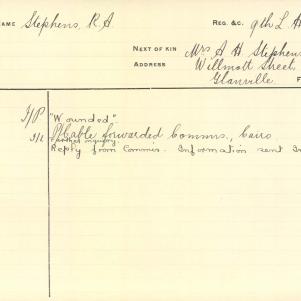 NAME Stephens, R A REG. &C. 9th L. H
NEXT OF KIN Mrs A H Stephens
ADDRESS Willmott Street
Glanville. F
"Wounded"
Cable forwarded Commrs., Cairo
inquiry.
Reply from Commrs. Information sent